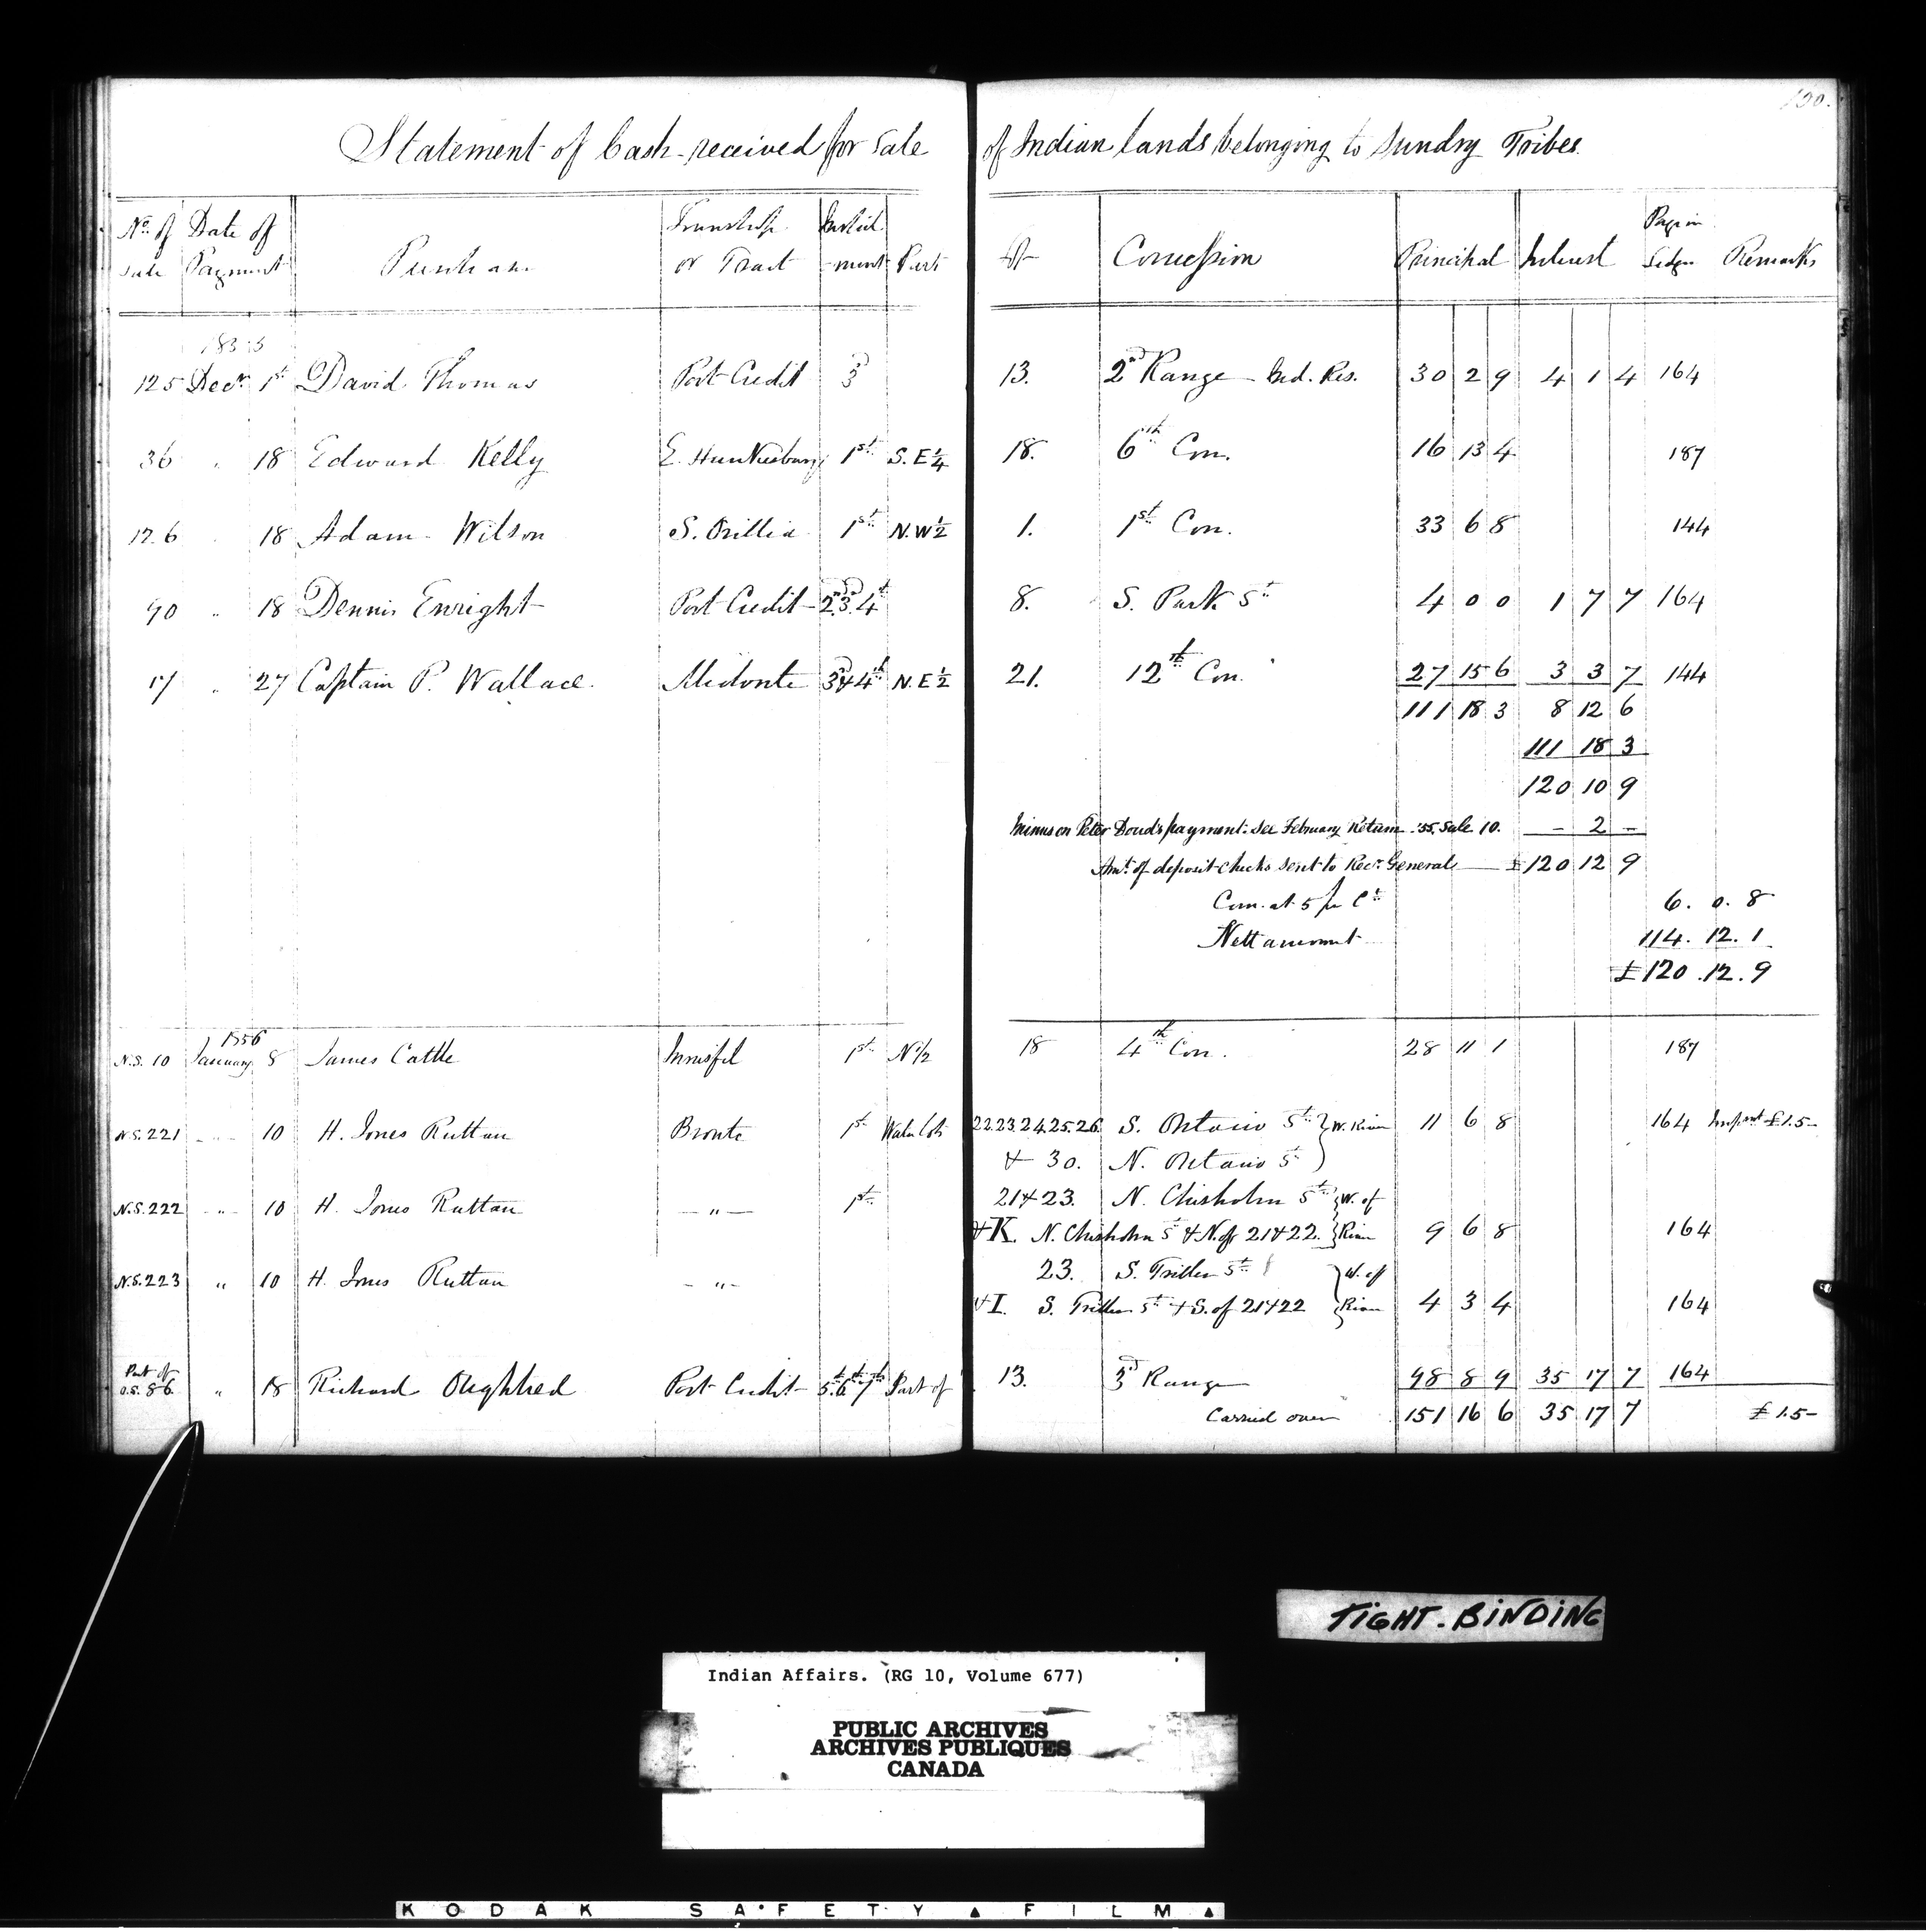 130.
Statement of Cash received for Sale of Indian lands belonging to Sundry Tribes
No. of Sale | Date of Payment | Purchaser | Township or Tract | Instalment | Part | Lot | Concession | Principal | Interest | Page in Ledger | Remarks
1855
125 Decr. 1st David Thomas Port Credit 3d 13. 2nd Range Ind. Res. 30 2 9 4 1 4 164
36 " 18 Edward Kelly 1st S.E ¼ 18. 6th Con. 16 13 4 187
126 " 18 Adam Wilson S. Orillia 1st N.W ½ 1. 1st Con. 33 6 8 144
90 " 18 Dennis Enright Port Credit 2nd. 3d. 4th 8. S. Park St 4 0 0 1 7 7 164
17 " 27 Captain P. Wallace Medonte 3d & 4th N.E ½ 21. 12th Con. 27 15 6 3 3 7 144
111 18 3 8 12 6
111 18 3
120 10 9
Minus on Peter Doud's payment. See February Return '55. Sale 10. - 2 -
Amt. of deposit checks sent to Recr. General £ 120 12 9
Com. at 5 per Ct. 6. 0. 8
Nett amount 114. 12. 1
£ 120. 12. 9
1856
N.S. 10 January 8 James Cattle Innisfil 1st N ½ 18 4th Con. 28 11 1 187
N.S. 221 " 10 H. Jones Ruttan Bronte 1st Water Lots 22.23.24.25.26. S. Ontario St } W. River 11 6 8 164 £1.5-
& 30. N. Ontario St }
N.S. 222 " 10 H. Jones Ruttan " 1st 21 & 23. N. Chisholm St } W. of
& K. N. Chisholm St & N. of 21 & 22. } River 9 6 8 164
N.S. 223 " 10 H. Jones Ruttan " 23. S. Triller St } W. of
& I. S. Triller St & S. of 21 & 22 } River 4 3 4 164
Part of O.S. 86 " 18 Richard Oughtred Port Credit 5th 6th 7th Part of 13. 3d Range 98 8 9 35 17 7 164
Carried over 151 16 6 35 17 7 £ 1.5-
TIGHT-BINDING
Indian Affairs. (RG 10, Volume 677)
PUBLIC ARCHIVES
ARCHIVES PUBLIQUES
CANADA
KODAK SAFETY FILM